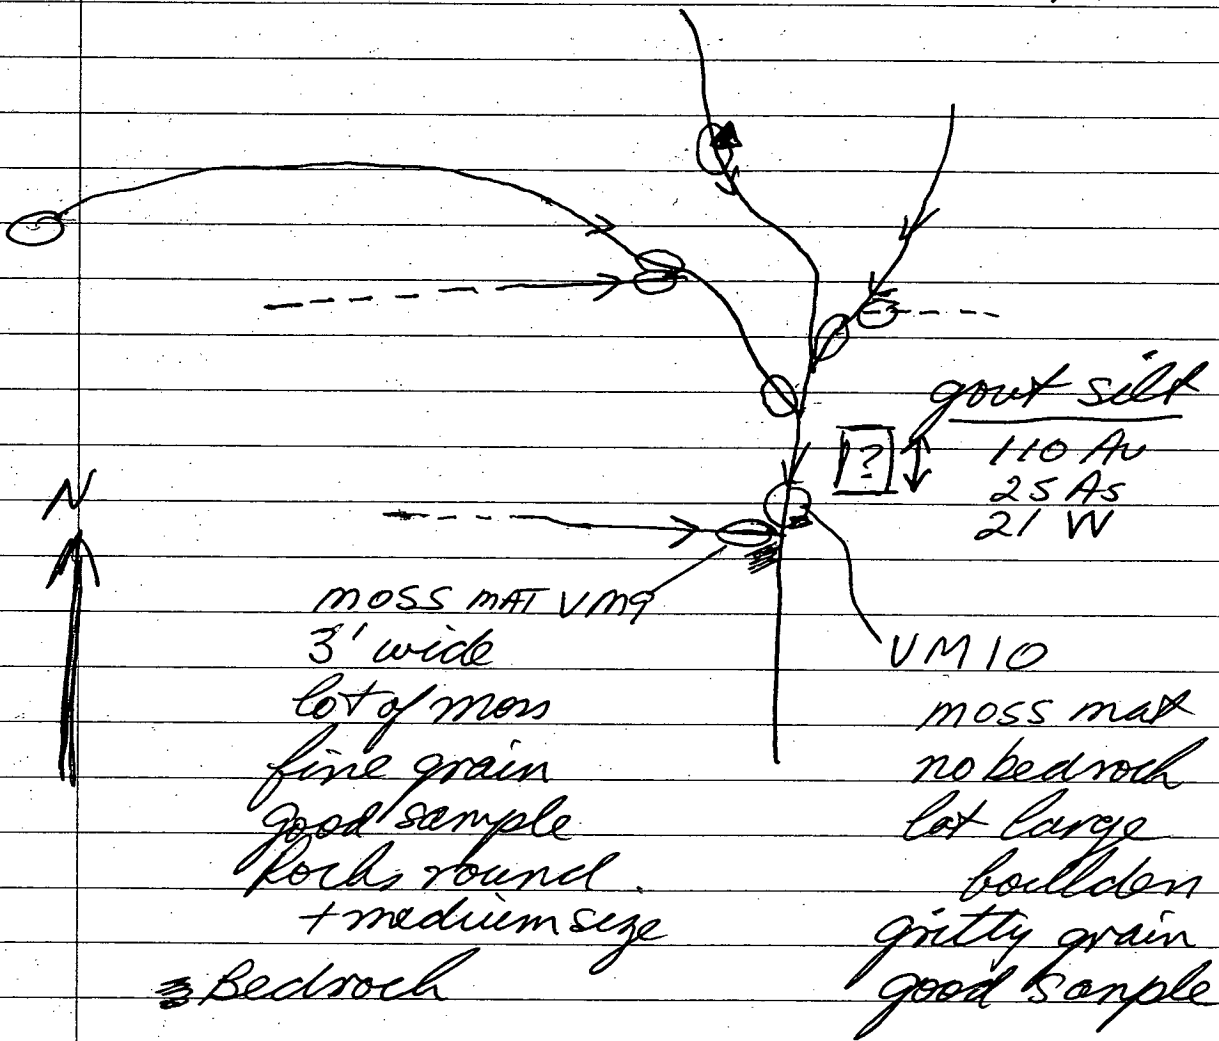 govt silt
110 Au
25 As
21 W
?
N
moss mat VM9
3' wide
lot of moss
fine grain
good sample
Rocks round
+ medium size
Bedrock
VM10
moss mat
no bedrock
lot large
boulders
gritty grain
good sample